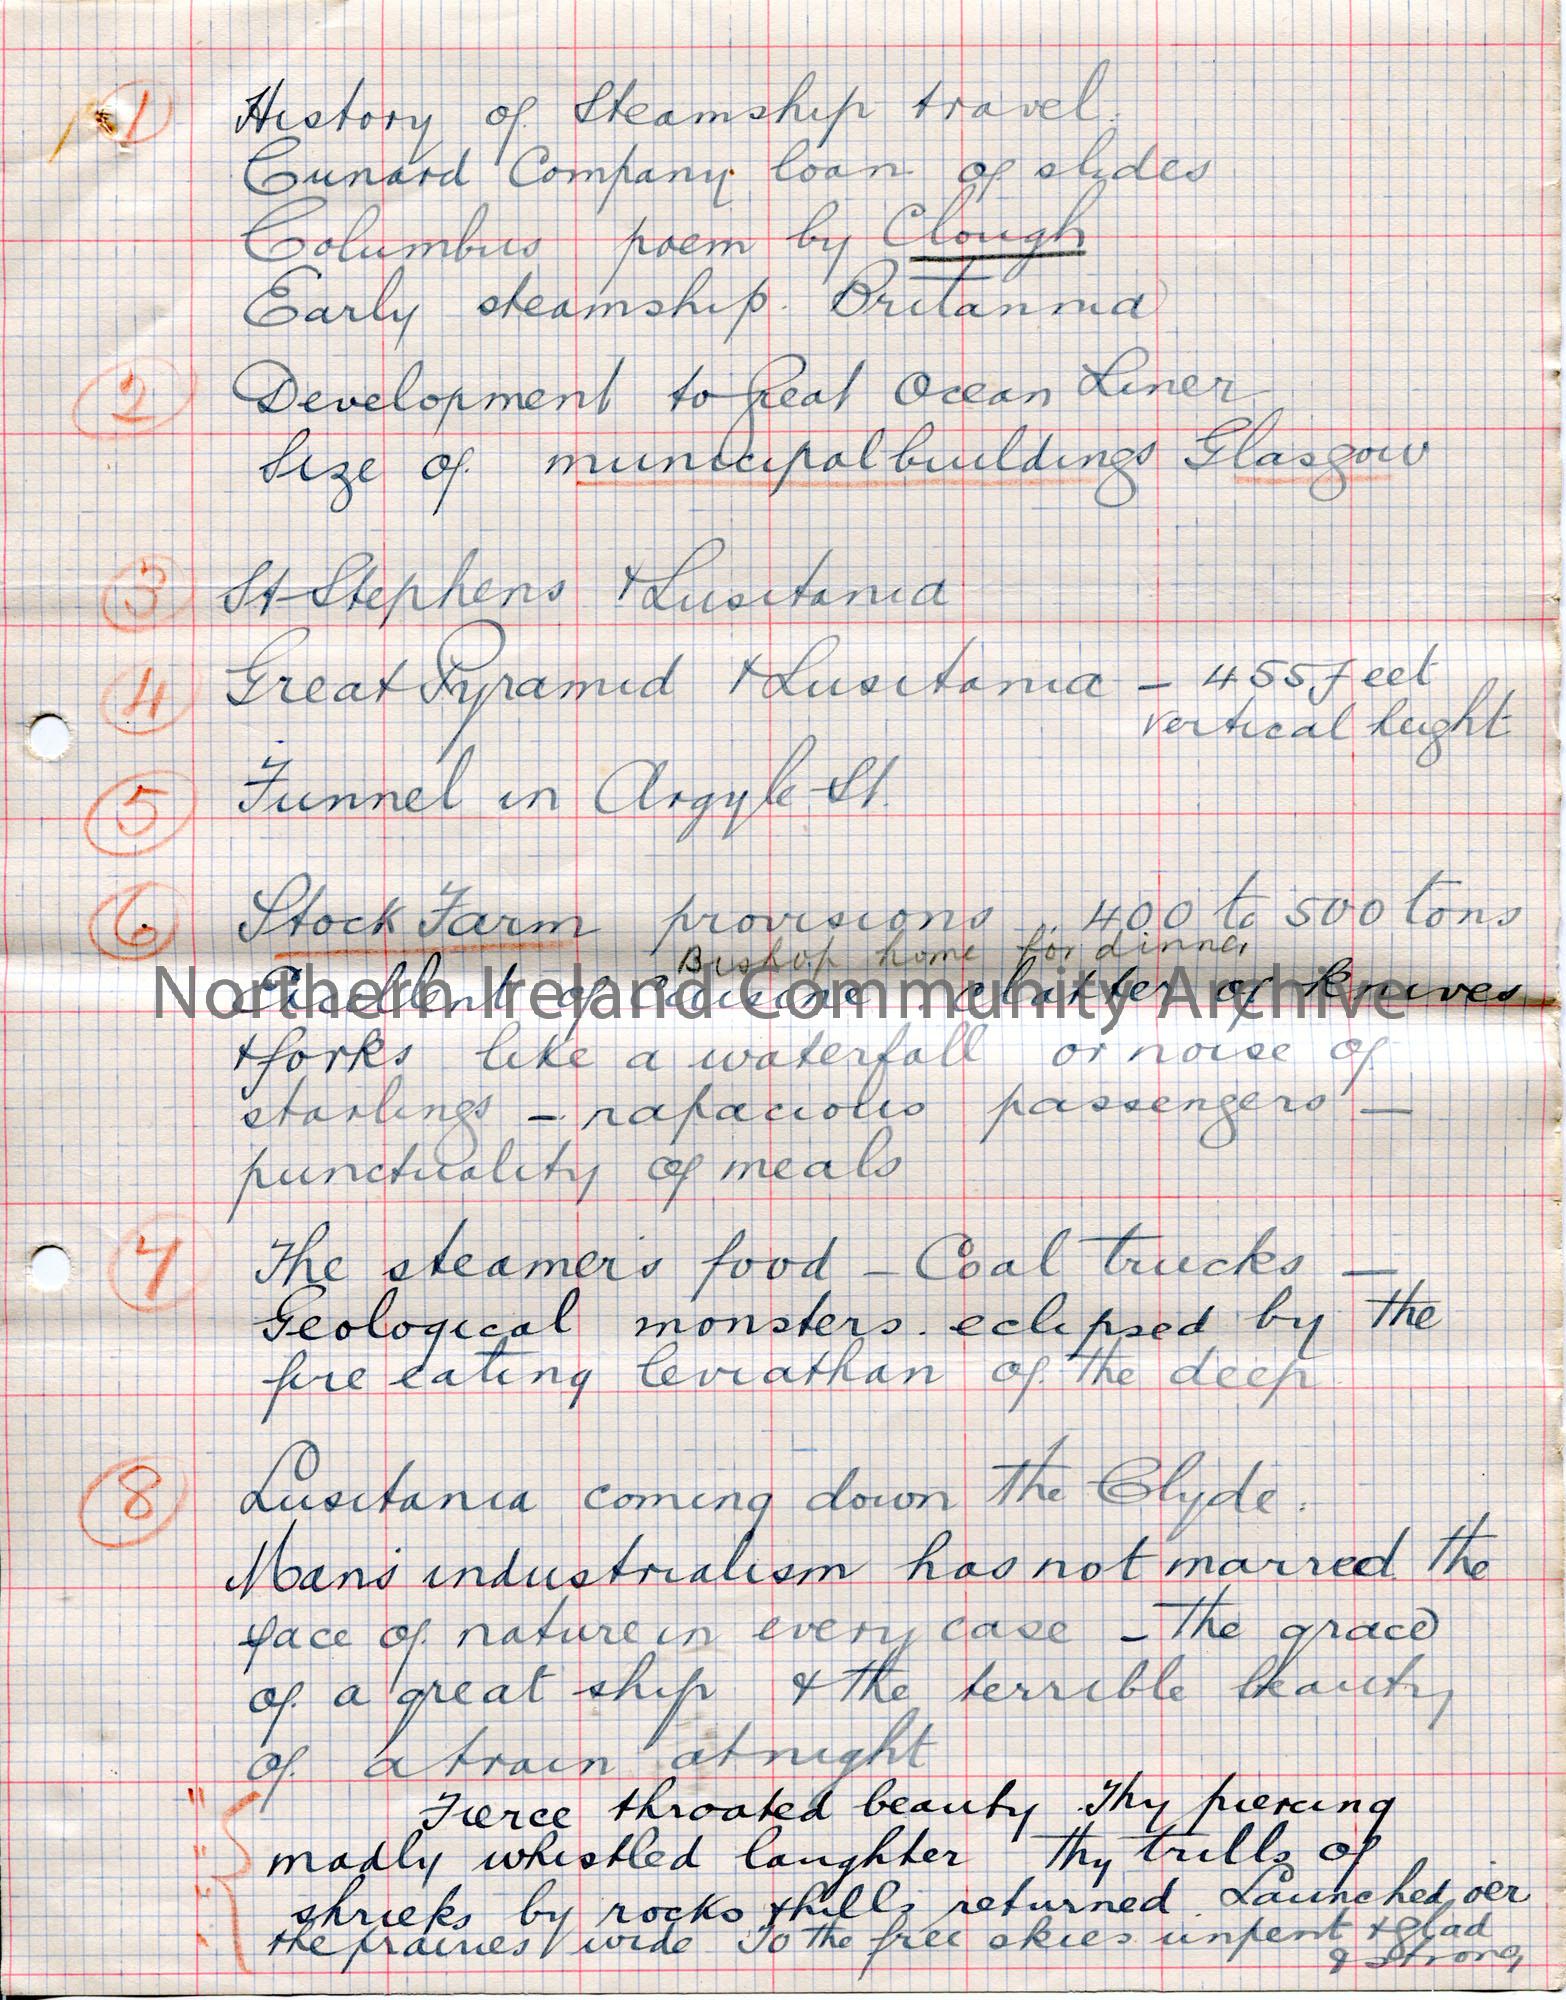 1 History of Steamship travel.
Cunard Company loan of slides
Columbus poem by Clough
Early steamship. Britannia
2 Development to Great Ocean Liner
Size of municipal buildings Glasgow
3 St Stephens & Lusitania
4 Great Pyramid & Lusitania - 455 feet
vertical hight
5 Funnel in Argyle St.
6 Stock Farm provisions .. 400 to 500 tons
Bishop home for dinner
Excellent of cuisine. clatter of knives
Northern Ireland Community Archive
& forks like a waterfall or noise of
starlings - rapacious passengers -
punctuality of meals
7 The steamer's food - Coal trucks -
Geological monsters. eclipsed by the
fire eating leviathan of the deep
8 Lusitania coming down the Clyde.
Man's industrialism has not marred the
face of nature in every case - The grace
of a great ship & the terrible beauty
of a train at night
Fierce throated beauty Thy piercing
madly whistled laughter thy trills of
shrieks by rocks & hills returned. Launched oer
the prairies wide To the free skies unpent & glad
& strong